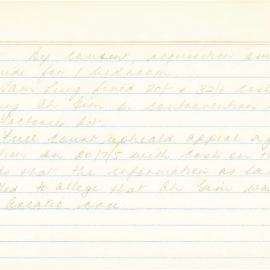 By consent, acquisition am
made for 1 bedroom.
Sam Lung fined 20/- & 32/6 cost
Ah Gim for contravention
Factories Act.
Full Court upheld appeal ag
on 20/7/5 with costs on
that the information as la
to allege that Ah Gim wa
Asiatic